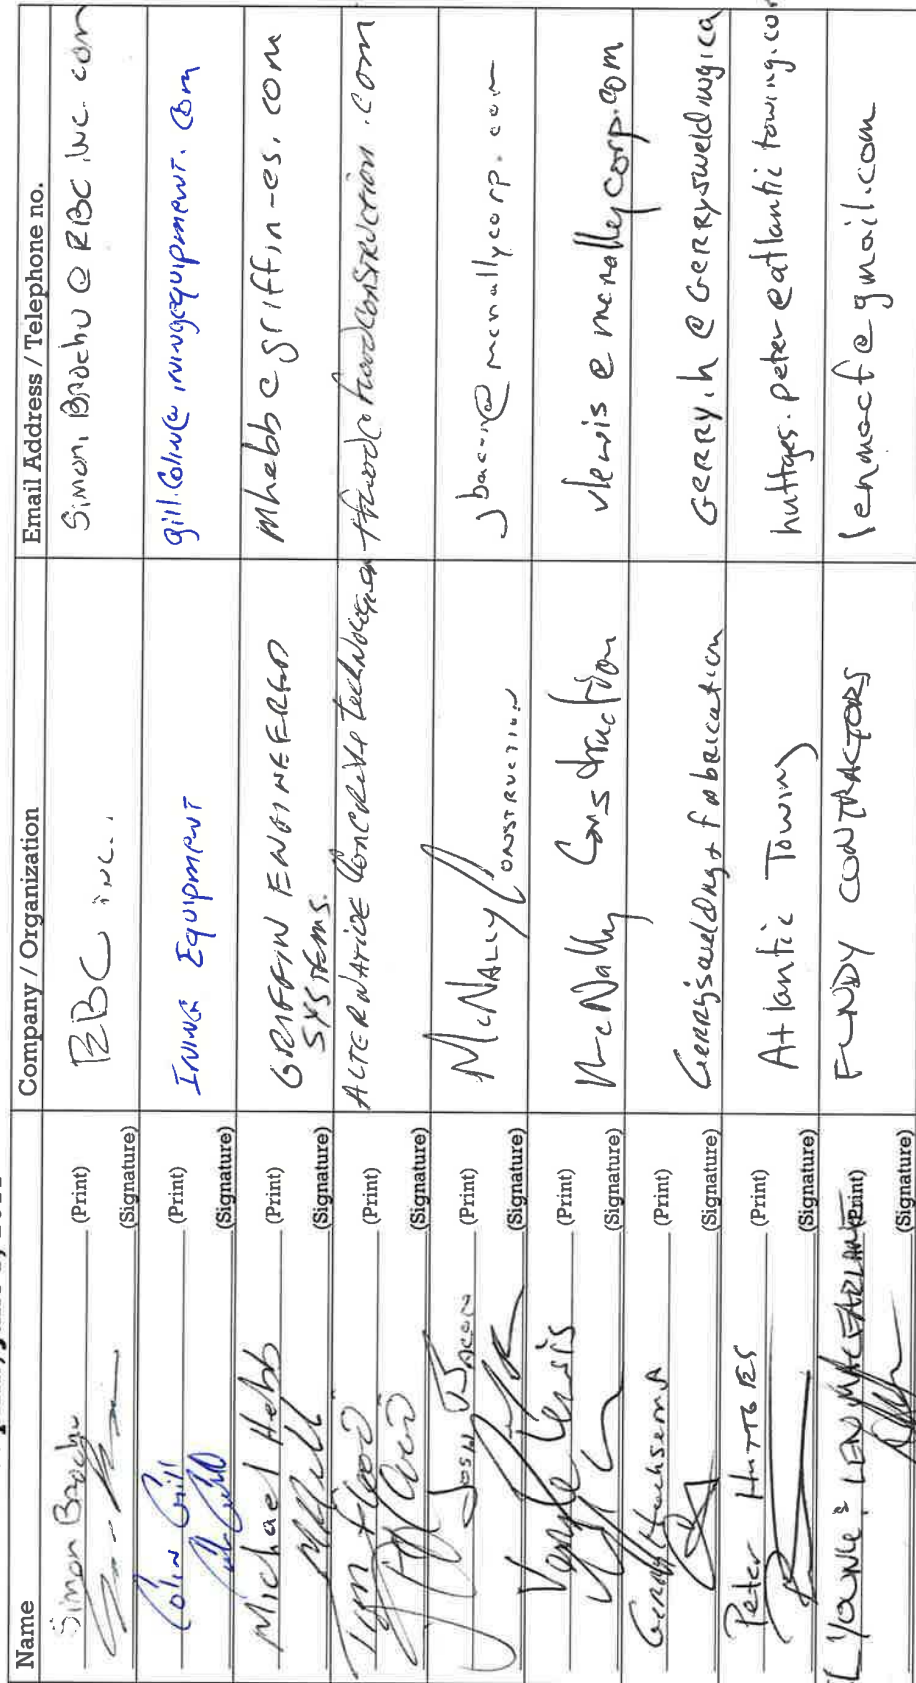 Name
Company / Organization
Email Address / Telephone no.
Simon Brochu (Print)
(Signature)
RBC inc..
Simon Brochu @ RBC inc. com
Colin Gill (Print)
(Signature)
IRVING EQUIPMENT
gill.colin@irvingequipment.com
Michael Hebb (Print)
(Signature)
GRIFFIN ENGINEERED
SYSTEMS.
mhebb@griffin-es.com
Tom Hood (Print)
(Signature)
ALTERNATIVE CONCRETE
Josh Bacon (Print)
(Signature)
McNALLY CONSTRUCTION
jbacon@mcnallycorp.com
Lewis (Print)
(Signature)
McNally Construction
vlewis@mcnallycorp.com
(Print)
(Signature)
Gerry's welding + fabrication
GERRY.h@GERRYSwelding.ca
Peter HUTTGES (Print)
(Signature)
Atlantic Towing
huttges.peter@atlantictowing.co
LEN MACFARLANE (Print)
(Signature)
FUNDY CONTRACTORS
lenmacf@gmail.com